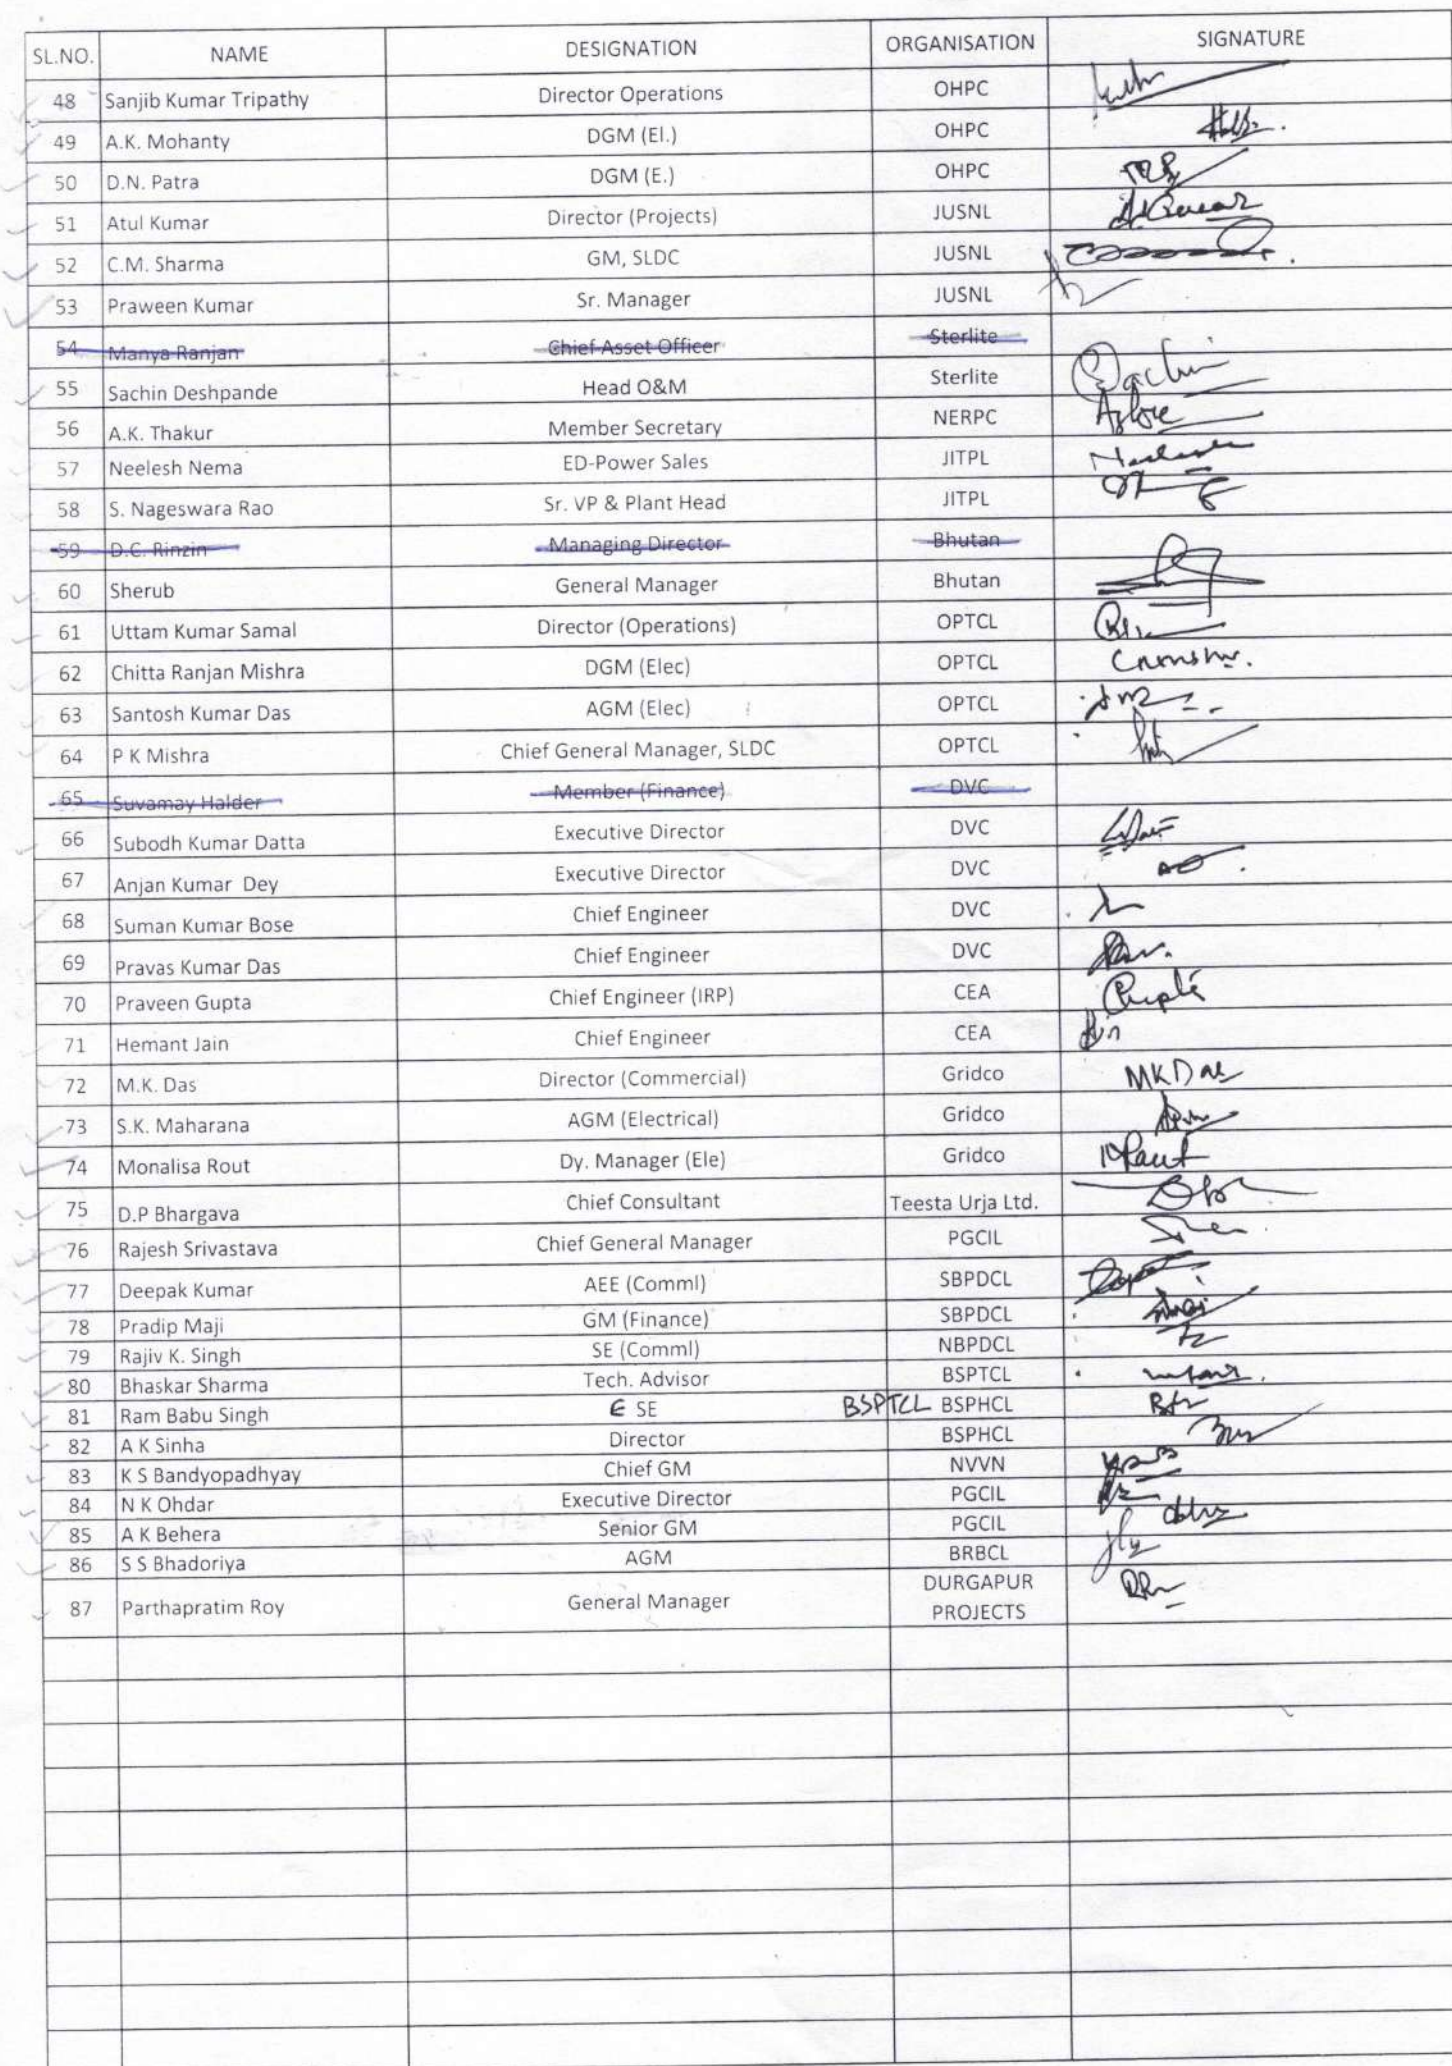 SL.NO. NAME DESIGNATION ORGANISATION SIGNATURE
48 Sanjib Kumar Tripathy Director Operations OHPC
49 A.K. Mohanty DGM (El.) OHPC
50 D.N. Patra DGM (E.) OHPC
51 Atul Kumar Director (Projects) JUSNL
52 C.M. Sharma GM, SLDC JUSNL
53 Praween Kumar Sr. Manager JUSNL
54 Manya Ranjan Chief Asset Officer Sterlite
55 Sachin Deshpande Head O&M Sterlite Sachin
56 A.K. Thakur Member Secretary NERPC
57 Neelesh Nema ED-Power Sales JITPL
58 S. Nageswara Rao Sr. VP & Plant Head JITPL
59 D.C. Rinzin Managing Director Bhutan
60 Sherub General Manager Bhutan
61 Uttam Kumar Samal Director (Operations) OPTCL
62 Chitta Ranjan Mishra DGM (Elec) OPTCL
63 Santosh Kumar Das AGM (Elec) OPTCL
64 P K Mishra Chief General Manager, SLDC OPTCL
65 Suvamay Halder Member (Finance) DVC
66 Subodh Kumar Datta Executive Director DVC
67 Anjan Kumar Dey Executive Director DVC
68 Suman Kumar Bose Chief Engineer DVC
69 Pravas Kumar Das Chief Engineer DVC
70 Praveen Gupta Chief Engineer (IRP) CEA
71 Hemant Jain Chief Engineer CEA
72 M.K. Das Director (Commercial) Gridco MKDas
73 S.K. Maharana AGM (Electrical) Gridco
74 Monalisa Rout Dy. Manager (Ele) Gridco MRout
75 D.P Bhargava Chief Consultant Teesta Urja Ltd.
76 Rajesh Srivastava Chief General Manager PGCIL
77 Deepak Kumar AEE (Comml) SBPDCL
78 Pradip Maji GM (Finance) SBPDCL
79 Rajiv K. Singh SE (Comml) NBPDCL
80 Bhaskar Sharma Tech. Advisor BSPTCL
81 Ram Babu Singh E SE BSPTCL BSPHCL
82 A K Sinha Director BSPHCL
83 K S Bandyopadhyay Chief GM NVVN
84 N K Ohdar Executive Director PGCIL
85 A K Behera Senior GM PGCIL
86 S S Bhadoriya AGM BRBCL
87 Parthapratim Roy General Manager DURGAPUR
PROJECTS